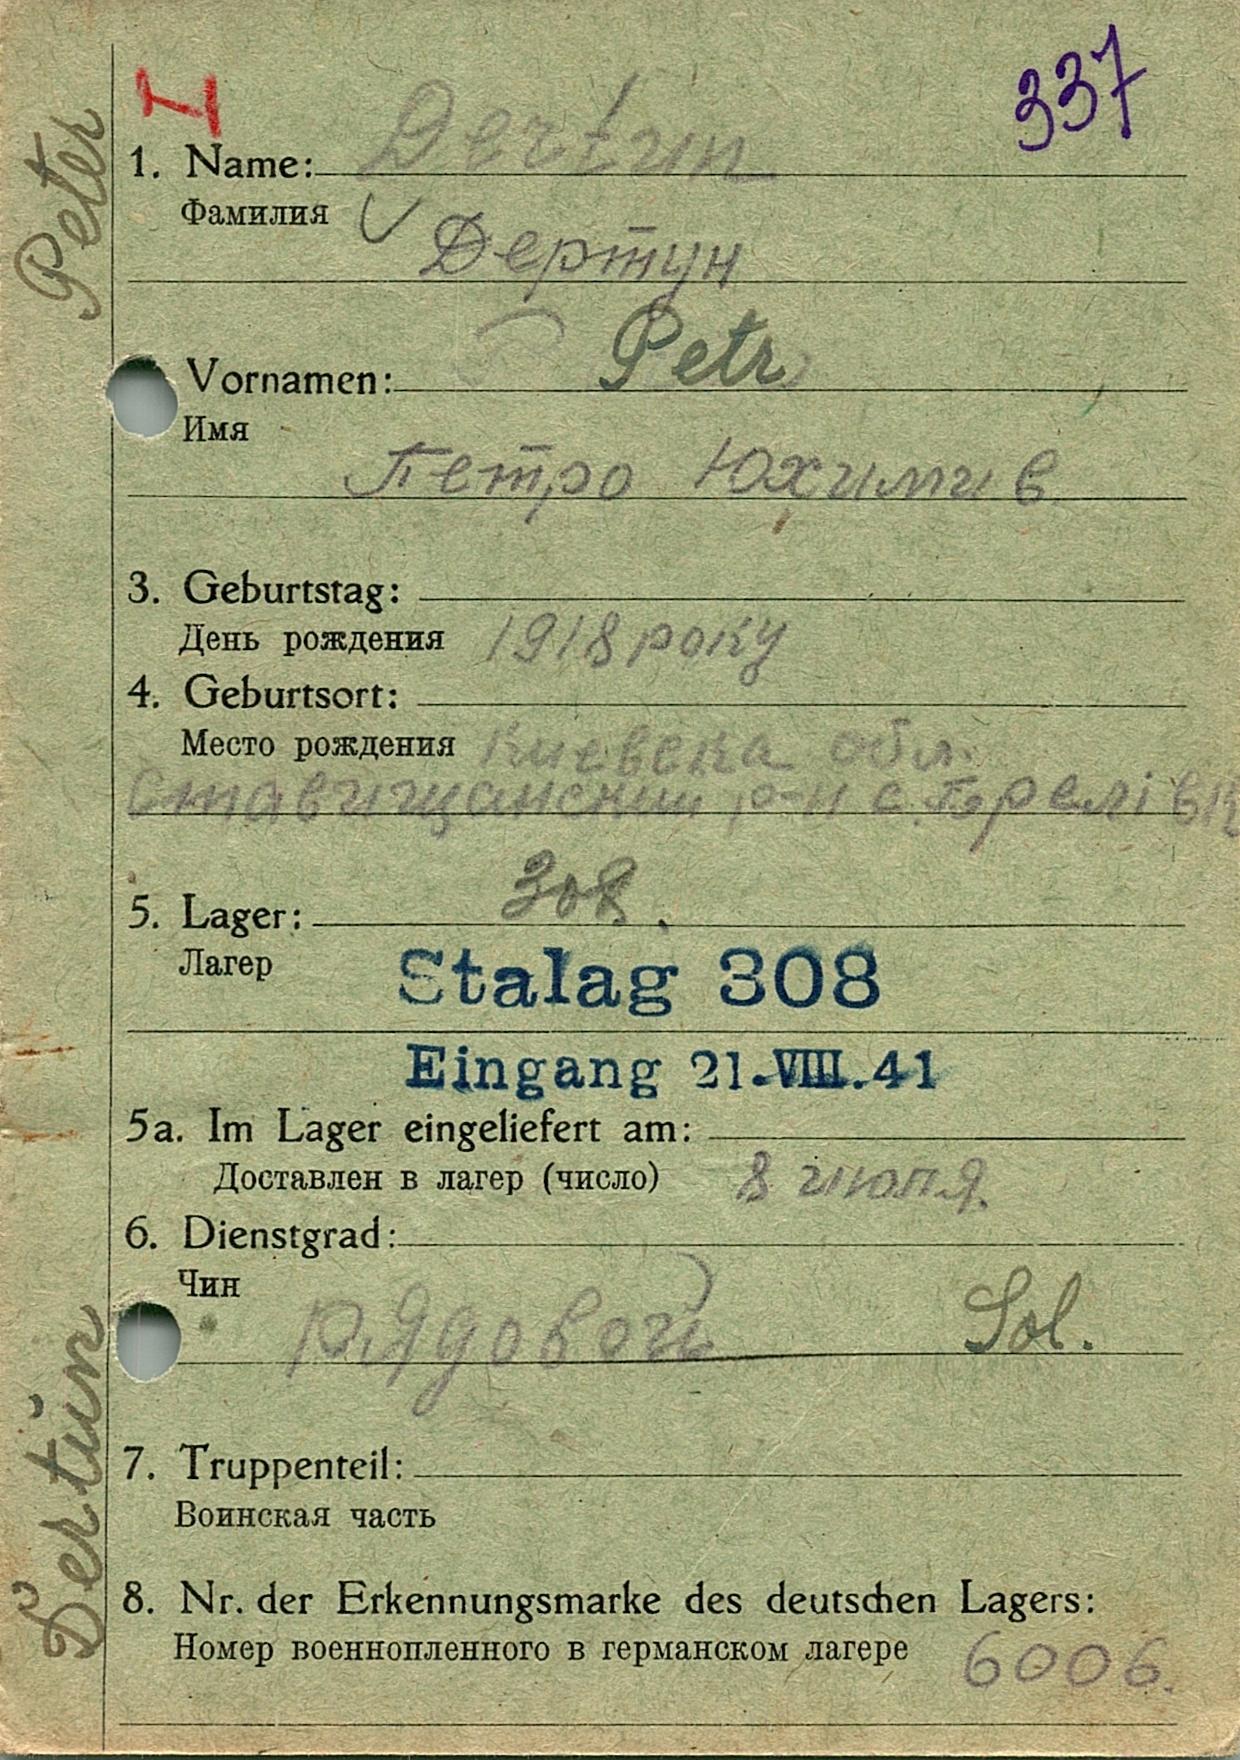 I
337
1. Name: Dertun
Фамилия
Дертун
Vornamen: Petr
Имя
Петро Юхимив
3. Geburtstag:
День рождения 1918 року
4. Geburtsort:
Место рождения Киевска обл.
Ставищанский р-н с.
5. Lager: 308.
Лагер
Stalag 308
Eingang 21.VIII.41
5a. Im Lager eingeliefert am:
Доставлен в лагер (число) 8 июля.
6. Dienstgrad:
Чин
рядовой Sol.
7. Truppenteil:
Воинская часть
8. Nr. der Erkennungsmarke des deutschen Lagers:
Номер военнопленного в германском лагере 6006.
Dertŭn Peter